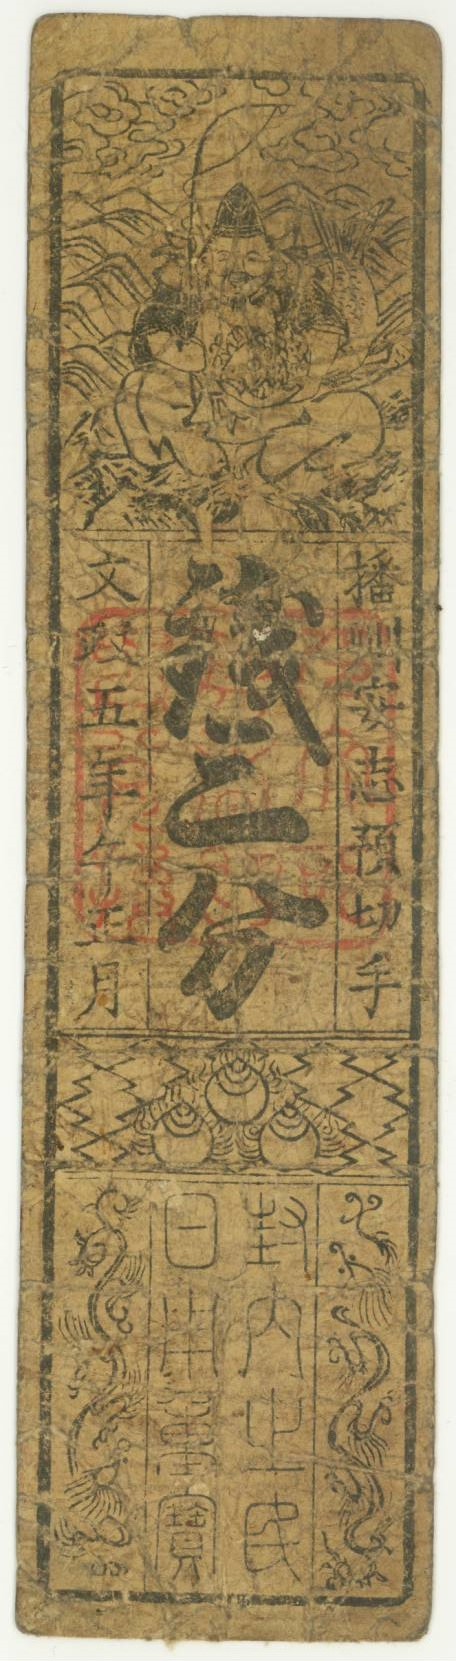 播州安志預切手
二分
文政五年午正月
封内之民
日用寶